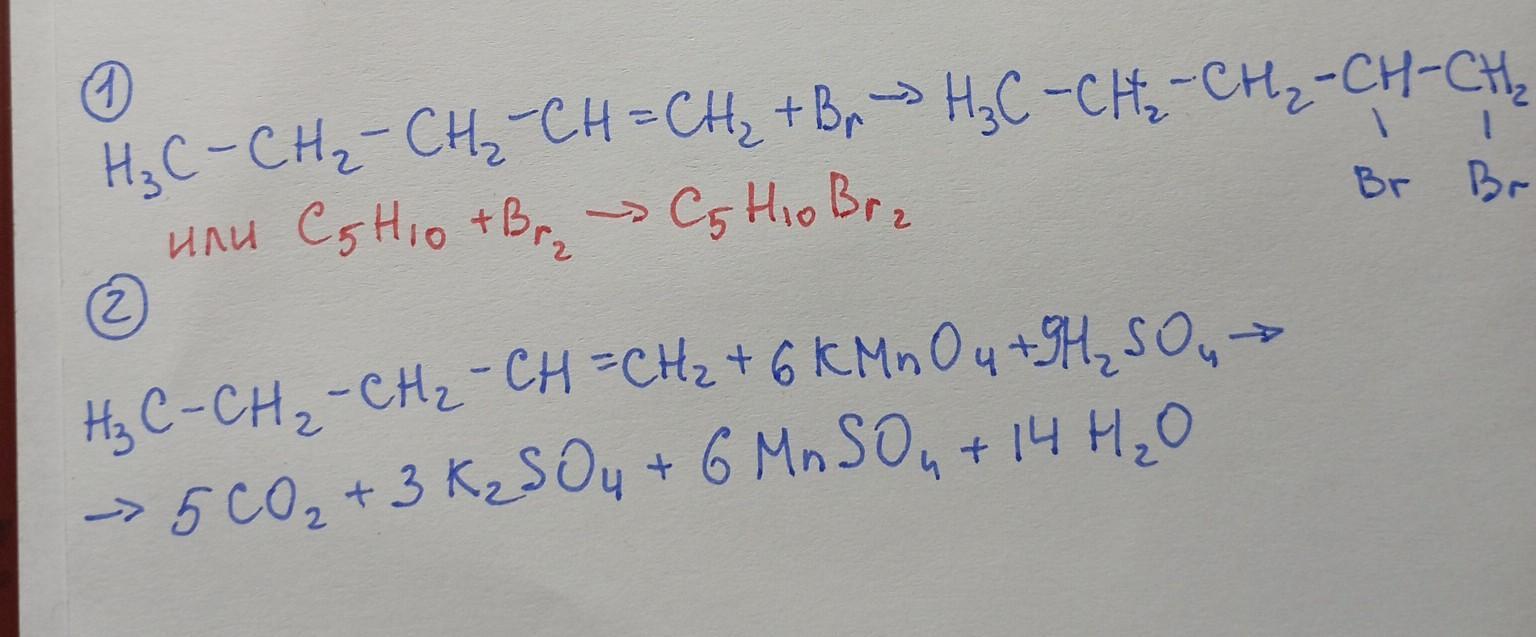 ①
H₃C-CH₂-CH₂-CH=CH₂+Br→H₃C-CH₂-CH₂-CH-CH₂
Br Br
или C₅H₁₀+Br₂→C₅H₁₀Br₂
②
H₃C-CH₂-CH₂-CH=CH₂+6KMnO₄+9H₂SO₄→
→5CO₂+3K₂SO₄+6MnSO₄+14H₂O